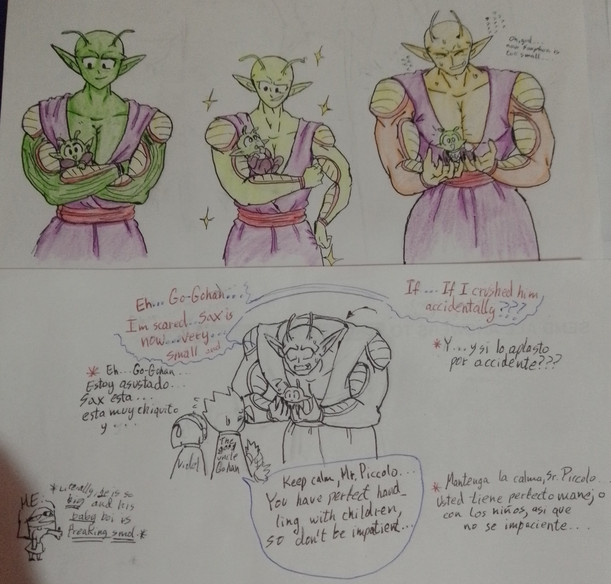 Oh, god...
now Saxophon is
too small....
Eh... Go-Gohan...
I'm scared... Sax is
now... very...
small and
If... If I crushed him
accidentally???
* Eh... Go-Gohan...
Estoy asustado...
Sax esta...
esta muy chiquito
y....
* Y... y si lo aplasto
por accidente???
Violet
The
uncle
Gohan
Keep calm, Mr. Piccolo...
You have perfect hand_
ling with children,
so don't be impatient...
* Mantenga la calma, Sr. Piccolo...
Usted tiene perfecto manejo
con los niños, asi que
no se impaciente...
ME:
* Literally, he is so
big and his
baby boi is
freaking smol. *